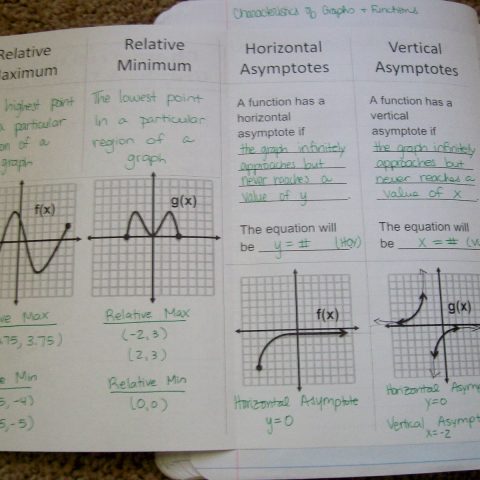 Characteristics of Graphs + Functions
Relative
Maximum
highest point
a particular
of a
graph
f(x)
Max
3.75)
Min
-4)
-5)
Relative
Minimum
The lowest point
in a particular
region of a
graph
g(x)
Relative Max
(-2, 3)
(2, 3)
Relative Min
(0,0)
Horizontal
Asymptotes
A function has a
horizontal
asymptote if
the graph infinitely
approaches but
never reaches a
value of y
The equation will
be y = # (HOY)
f(x)
Horizontal Asymptote
y=0
Vertical
Asymptotes
A function has a
vertical
asymptote if
the graph infinitely
approaches but
never reaches a
value of x
The equation will
be x = #
g(x)
Horizontal Asym
y=0
Vertical Asympt
x=-2